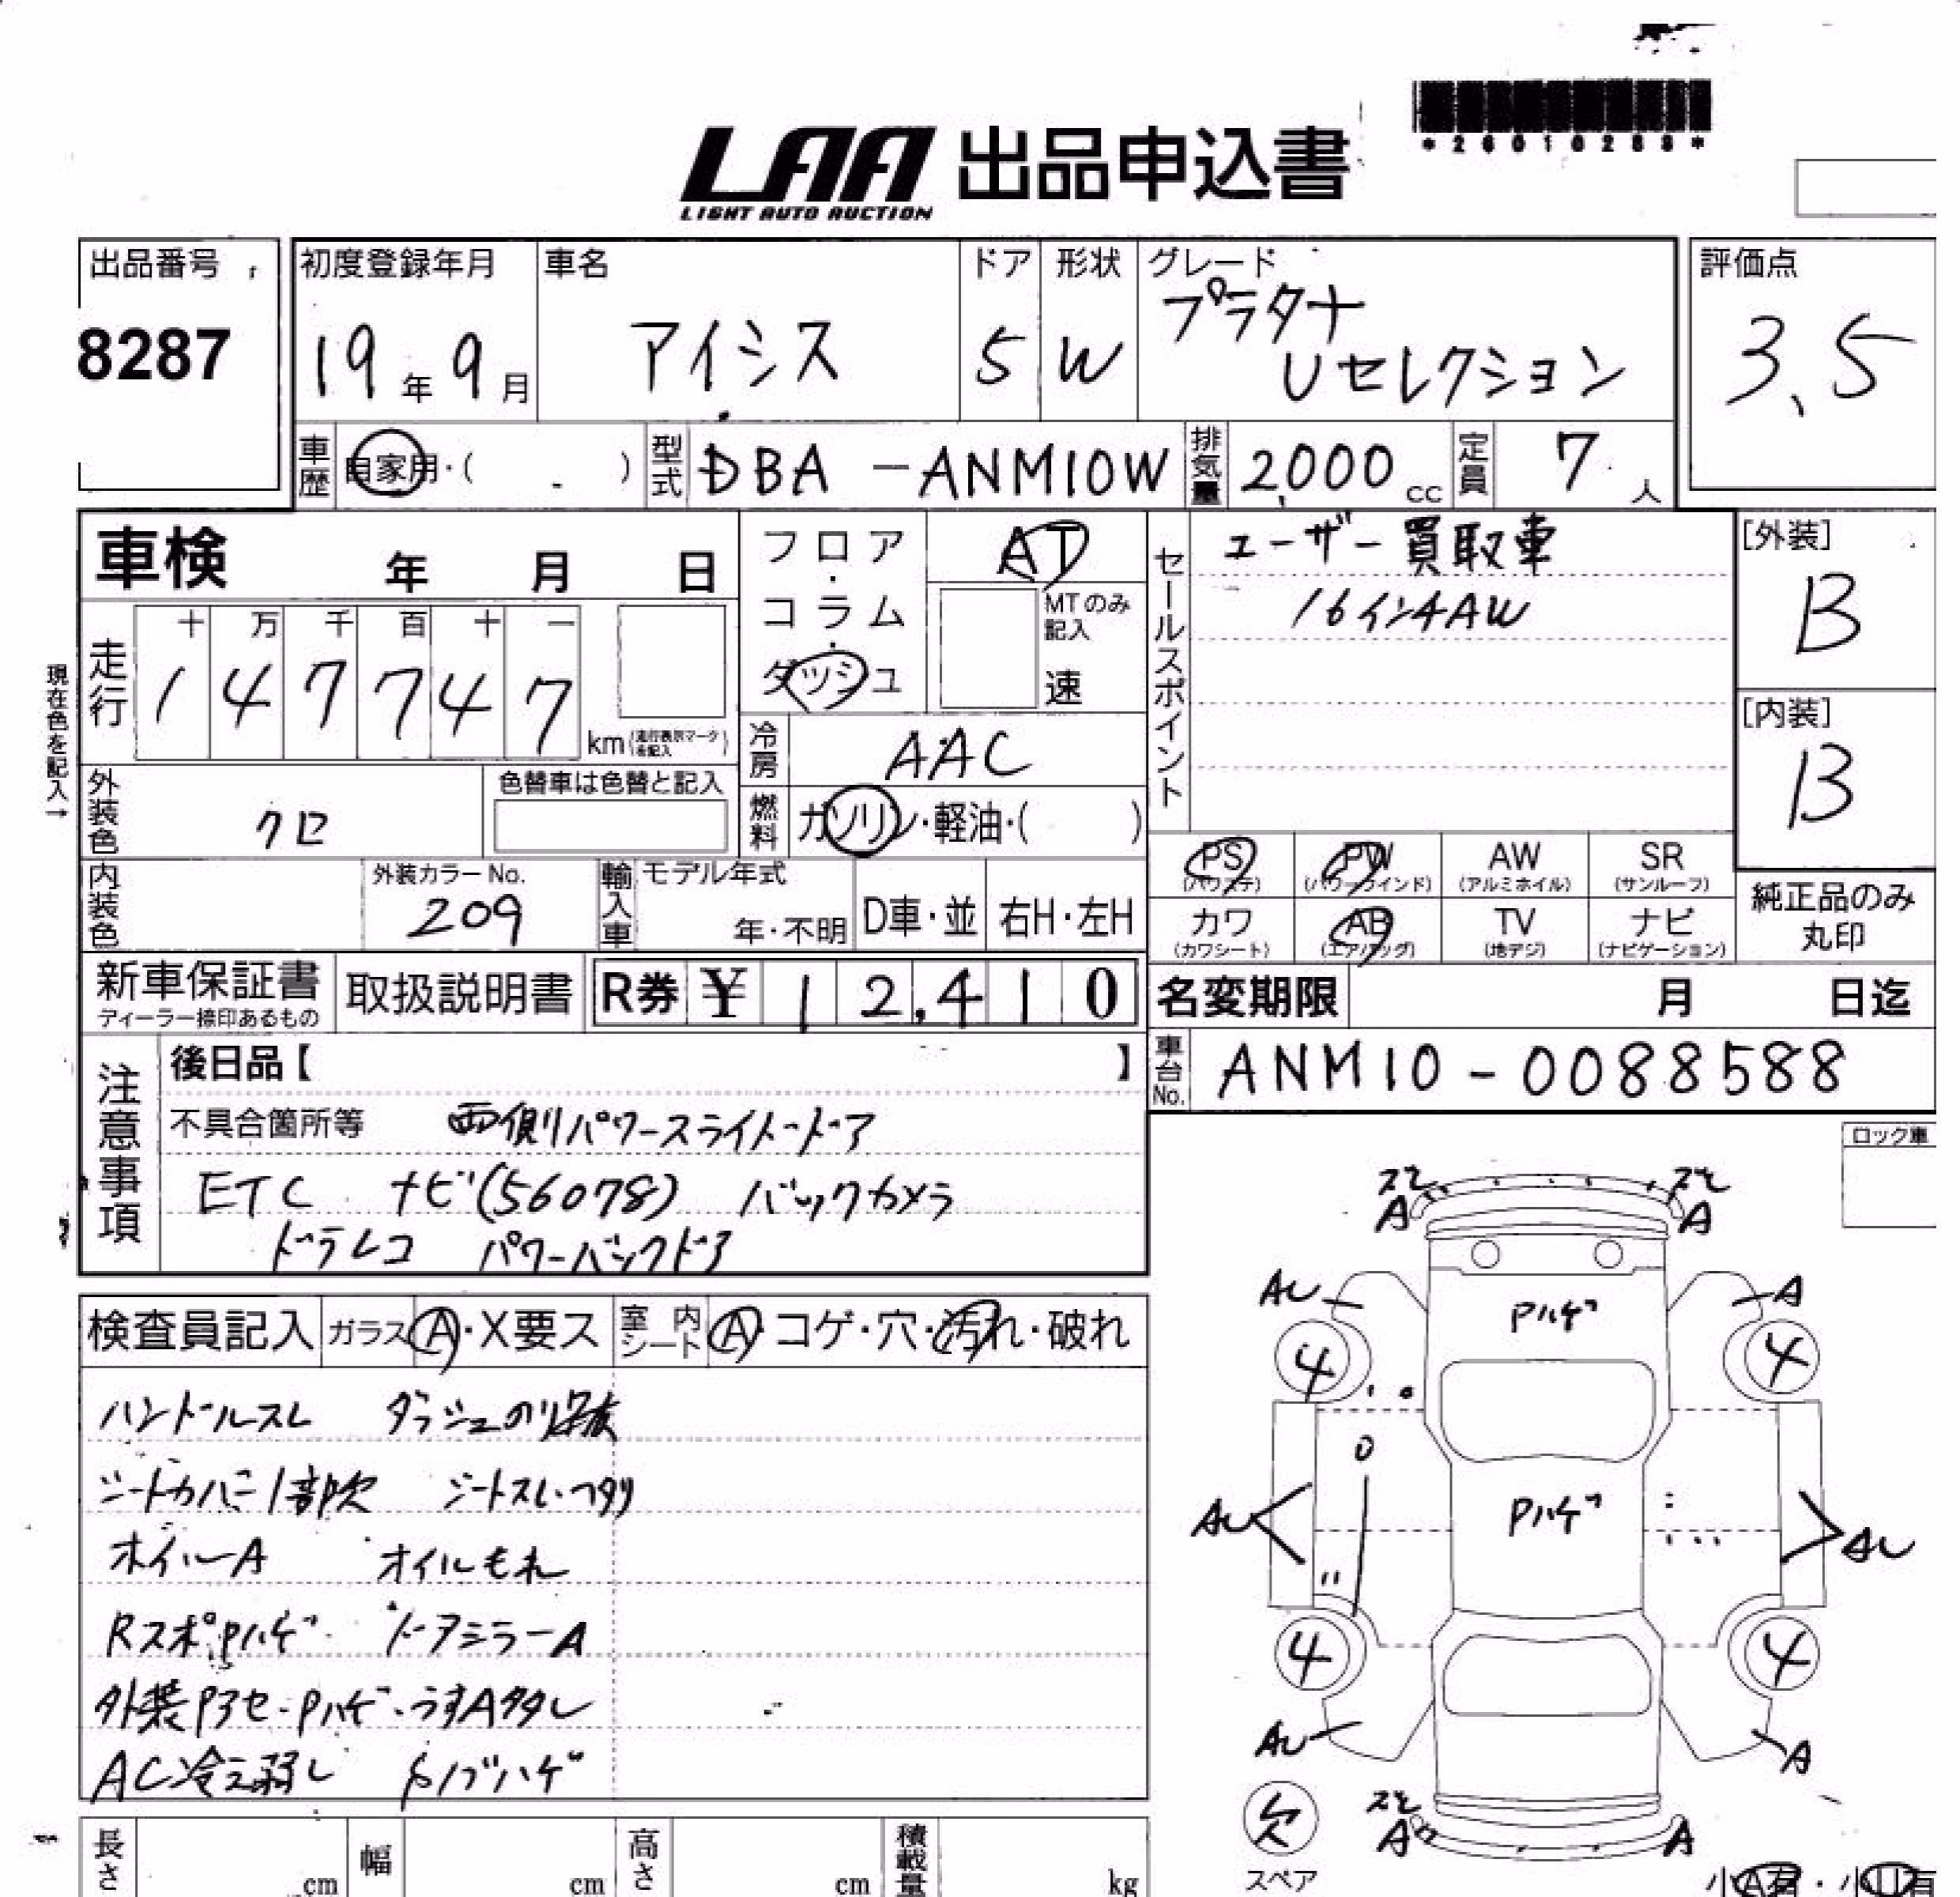 *26010289*
LAA 出品申込書
LIGHT AUTO AUCTION
出品番号
8287
初度登録年月
19年9月
車名
アイシス
ドア
5
形状
W
グレード
プラタナ
Uセレクション
評価点
3.5
車歴
自家用・( )
型式
DBA-ANM10W
排気量
2,000cc
定員
7人
車検 年 月 日
走行
十 万 千 百 十 一
1 4 7 7 4 7
km(走行表示マークを記入)
現在色を記入→
外装色
クロ
色替車は色替と記入
内装色
外装カラーNo.
209
輸入車
モデル年式
年・不明
D車・並
右H・左H
フロア・コラム・ダッシュ
AT
MTのみ記入
速
冷房
AAC
燃料
ガソリン・軽油・( )
セールスポイント
ユーザー買取車
16インチAW
[外装]
B
[内装]
B
PS
(パワステ)
PW
(パワーウインド)
AW
(アルミホイル)
SR
(サンルーフ)
カワ
(カワシート)
AB
(エアバッグ)
TV
(地デジ)
ナビ
(ナビゲーション)
純正品のみ
丸印
新車保証書
ディーラー捺印あるもの
取扱説明書
R券 ¥12,410
名変期限 月 日迄
車台No.
ANM10-0088588
注意事項
後日品【 】
不具合箇所等 両側パワースライドドア
ETC ナビ(56078) バックカメラ
ドラレコ パワーバックドア
ロック車
検査員記入
ガラス A・X要ス
室内シート A・コゲ・穴・汚れ・破れ
ハンドルスレ ダッシュのり跡
シートカバー1部欠 シートスレ・ヘタリ
ホイールA オイルもれ
RスポPハゲ ドアミラーA
外装Pアセ・Pハゲ・うすA多タし
AC冷え弱し ノブハゲ
スモ
A
スモ
A
AU
A
Pハゲ
4
4
Pハゲ
AU
AU
4
4
AU
A
欠
スペア
スモ
A
A
小A有・小U有
長さ cm
幅 cm
高さ cm
積載量 kg